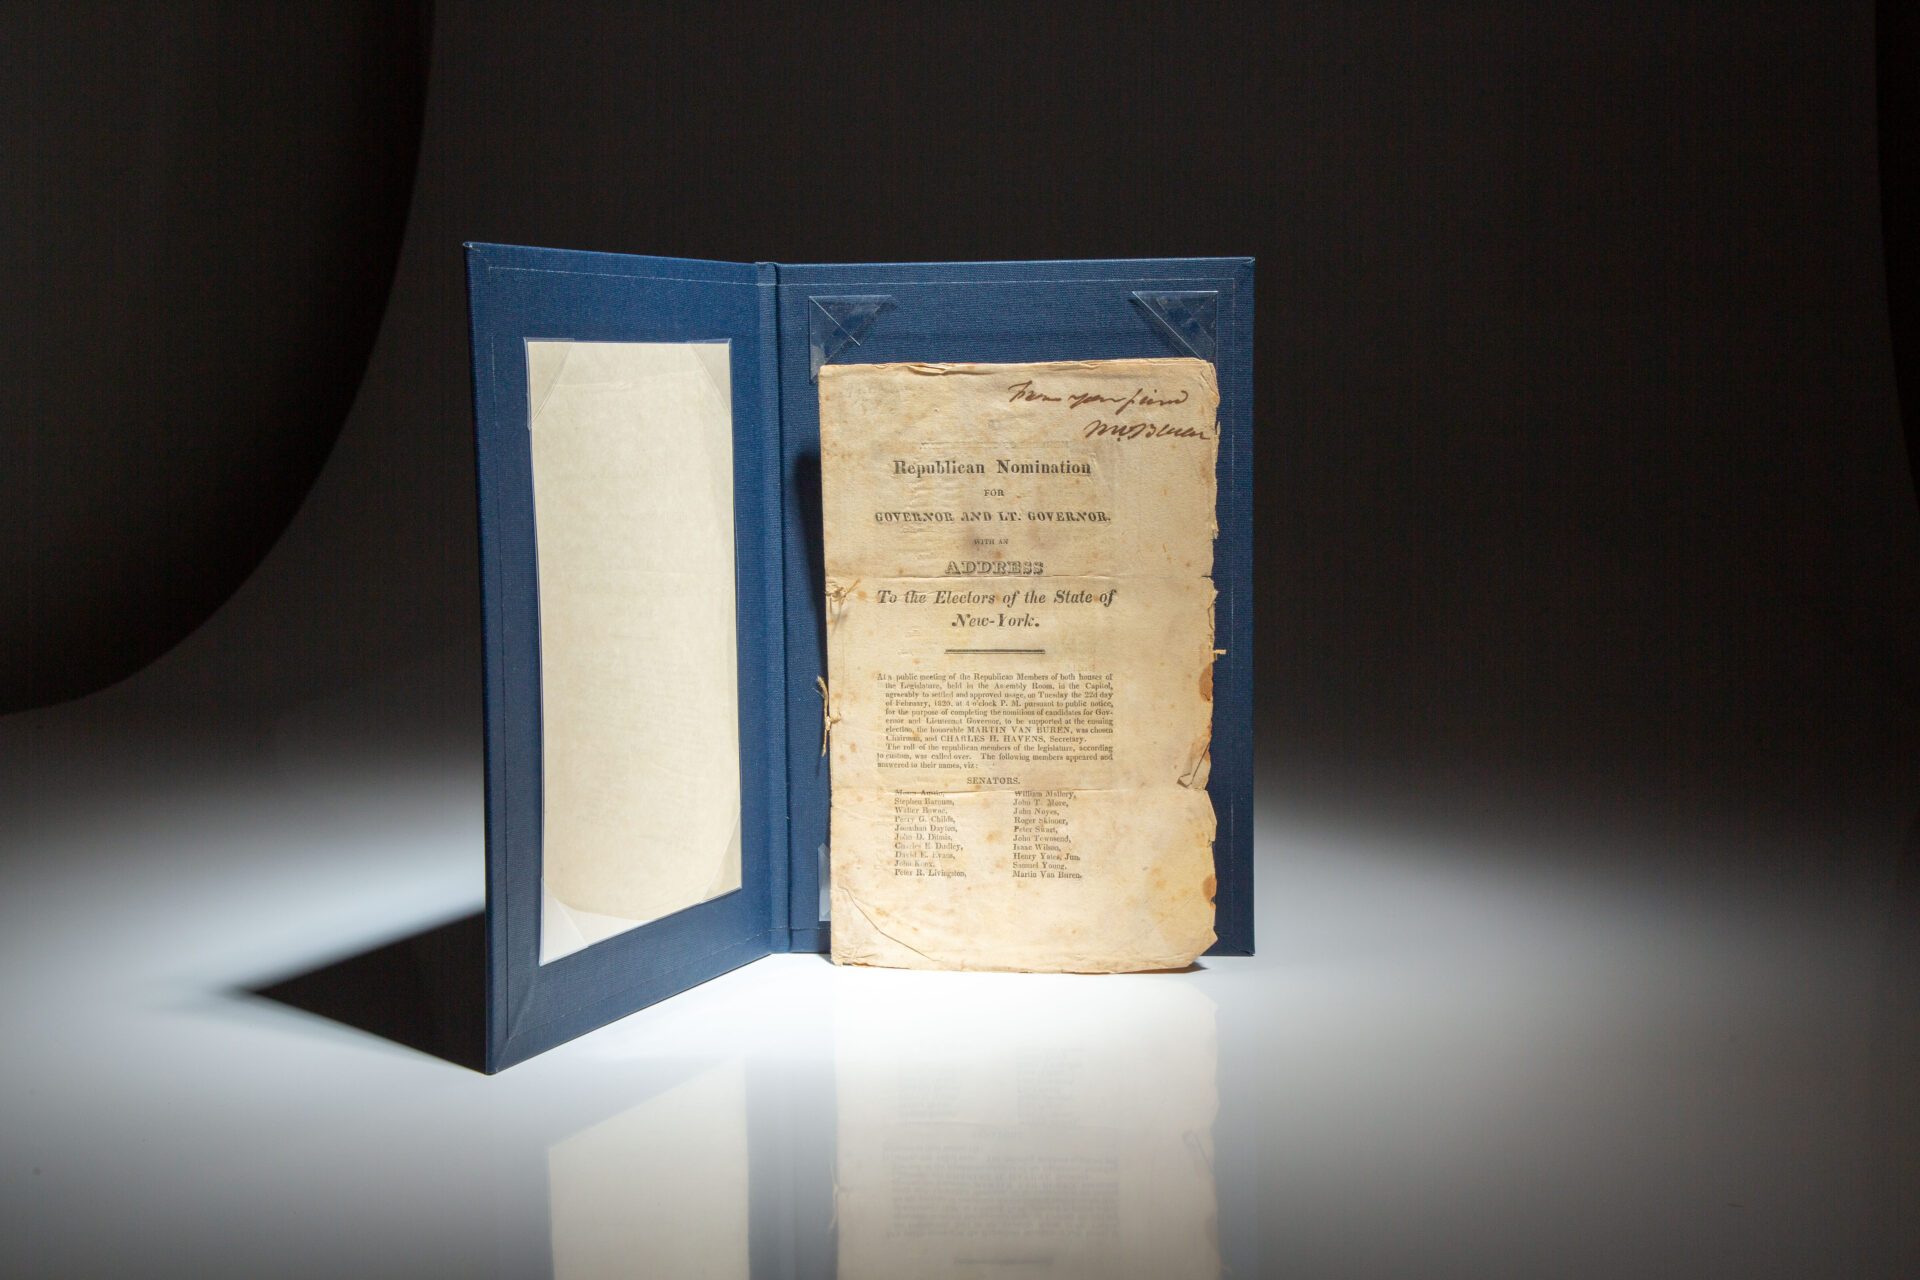 From your friend
M. V. Buren
Republican Nomination
FOR
GOVERNOR AND LT. GOVERNOR.
WITH AN
ADDRESS
To the Electors of the State of
New-York.
At a public meeting of the Republican Members of both houses of
the Legislature, held in the Assembly Room, in the Capitol,
agreeably to settled and approved usage, on Tuesday the 22d day
of February, 1820, at 4 o'clock P. M. pursuant to public notice,
for the purpose of completing the nomitions of candidates for Gov-
ernor and Lieutenant Governor, to be supported at the ensuing
election, the honorable MARTIN VAN BUREN, was chosen
Chairman, and CHARLES H. HAVENS, Secretary.
The roll of the republican members of the legislature, according
to custom, was called over. The following members appeared and
answered to their names, viz:
SENATORS.
Moses Austin, William Mallory,
Stephen Barnum, John T. More,
Walter Bowne, John Noyes,
Perry G. Childs, Roger Skinner,
Jonathan Dayton, Peter Swart,
John D. Ditmis, John Townsend,
Charles E. Dudley, Isaac Wilson,
David E. Evans, Henry Yates, Jun.
John Knox, Samuel Young,
Peter R. Livingston, Martin Van Buren.